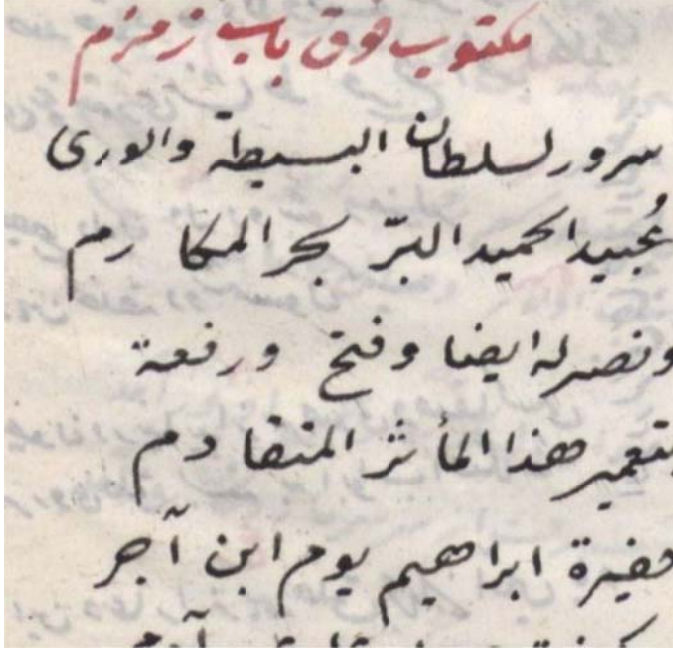 مكتوب فوق باب زمزم
سرور لسلطان البسيطة والورى
عُبيد الحميد البرّ بحر المكارم
ونصر له ايضا وفتح ورفعة
بتعمير هذا المأثر المتقادم
ابراهيم يوم ابن آجر